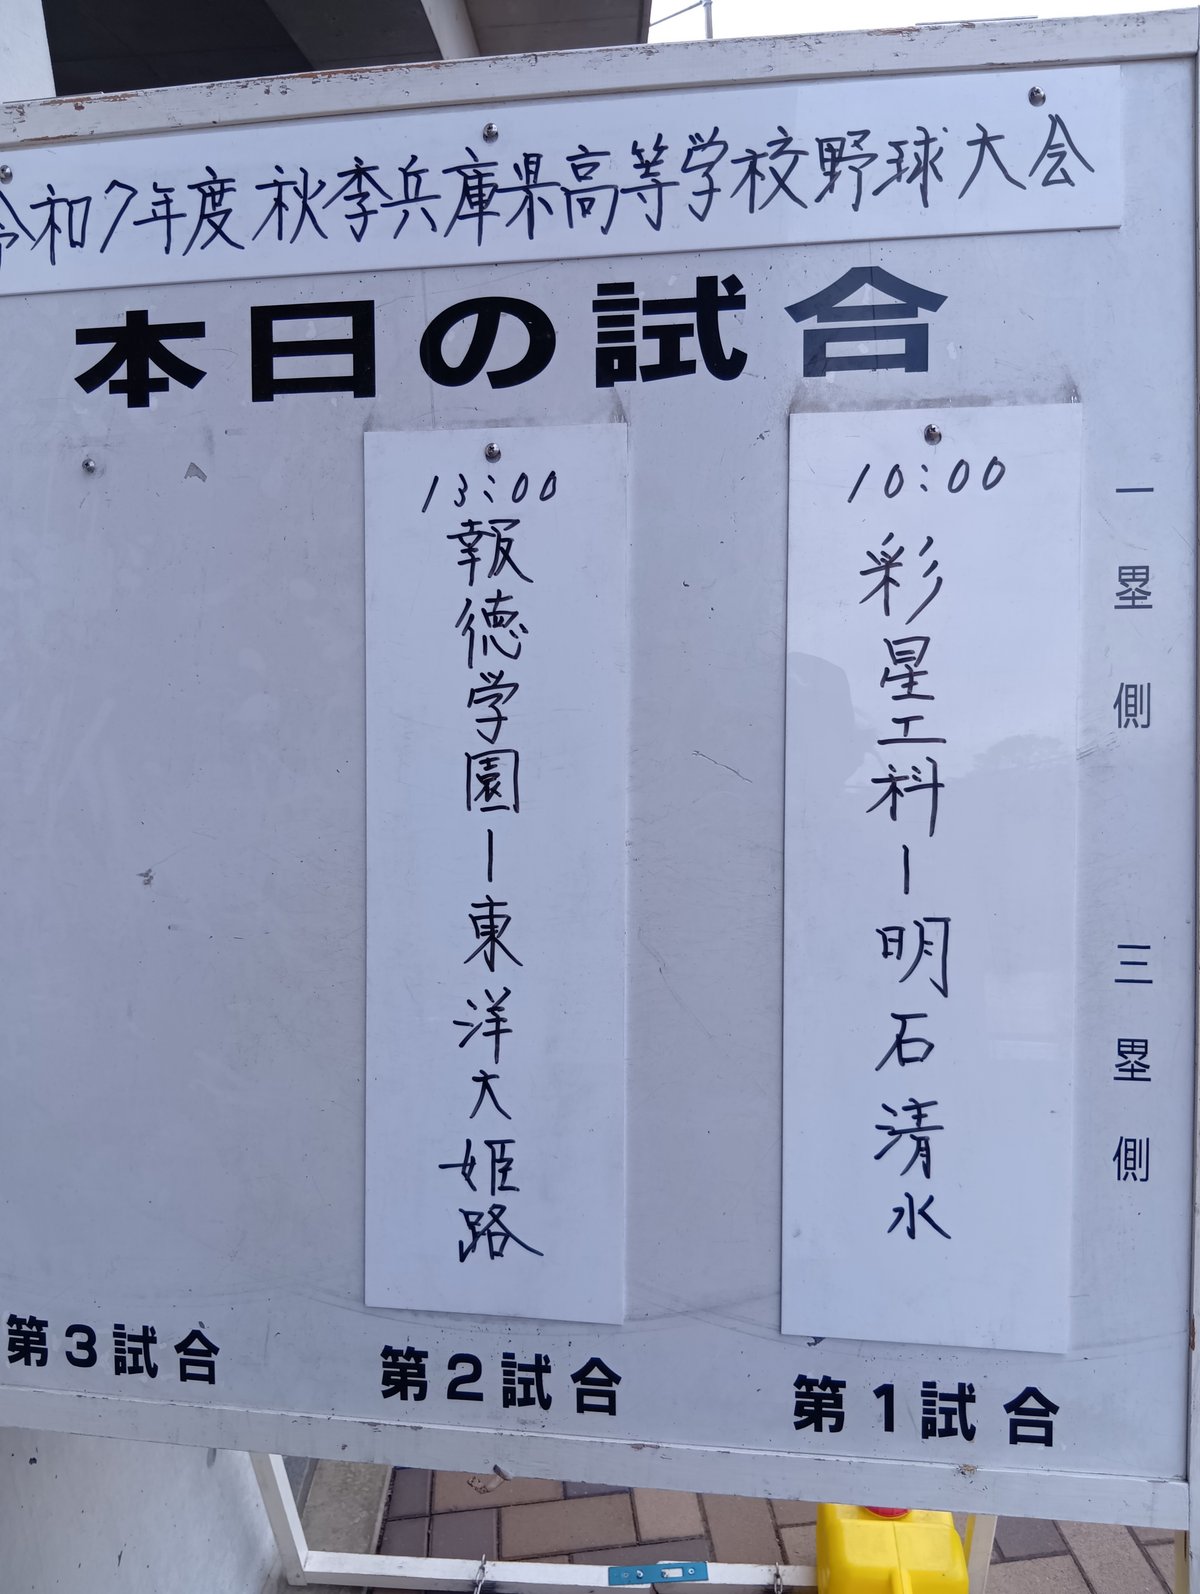 令和7年度秋季兵庫県高等学校野球大会
本日の試合
一塁側 三塁側
10:00
彩星工科ー明石清水
第1試合
13:00
報徳学園ー東洋大姫路
第2試合
第3試合